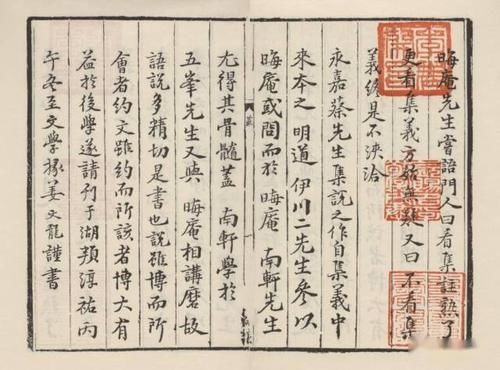 晦庵先生嘗語門人曰看集註熟了
更看集義方始無疑又曰不看集
義終是不浹洽
永嘉蔡先生集說之作自集義中
來本之明道伊川二先生參以
晦庵或問而於晦庵南軒先生
尤得其骨髓蓋南軒學於
五峯先生又與晦庵相講磨故
語說多精切是書也說雖博而所
會者約文雖約而所該者博大有
益於後學遂請刊于湖頖淳祐丙
午冬至文學掾姜文龍謹書